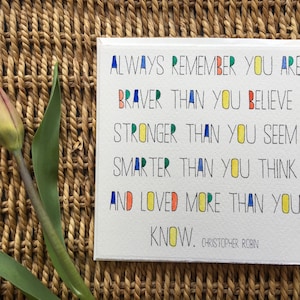 ALWAYS REMEMBER YOU ARE
BRAVER THAN YOU BELIEVE
STRONGER THAN YOU SEEM
SMARTER THAN YOU THINK
AND LOVED MORE THAN YOU
KNOW. CHRISTOPHER ROBIN